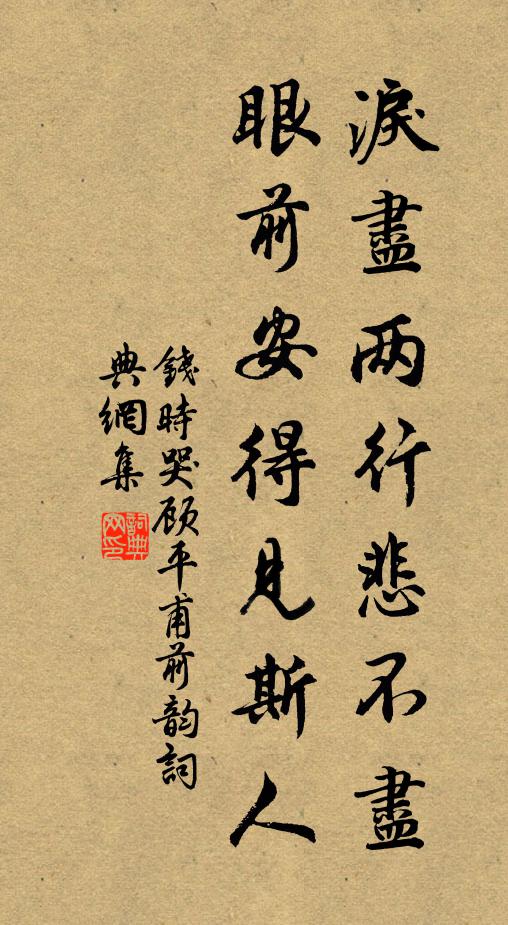 淚盡两行悲不盡
眼前安得見斯人
錢時哭顾平甫前韵詞
典網集
詞典
网印